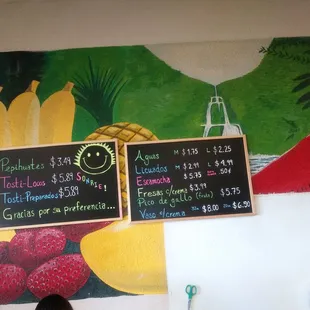 Pepihuates $3.49
Tosti-Locos $5.89
Tosti-Preparados $5.89
Gracias por su preferencia...
SONRSE!
Aguas M $1.75 L $2.25
Licuados M $2.99 L $4.99
Escamocha $5.75 .50¢
Fresas c/crema $3.99
Pico de gallo (fruta) $5.75
Vaso c/crema $8.00 $6.50